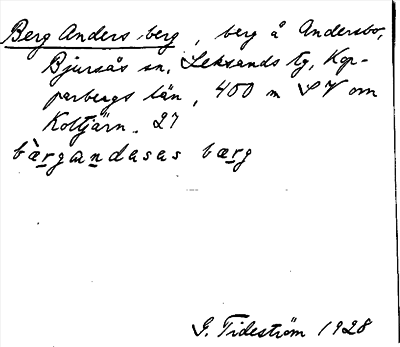 Berg Anders berg, berg å Andersbo,
Bjursås sn, Leksands tg, Kop-
parbergs län, 400 m SV om
Koltjärn. 27
bærgandasas bærg
G. Tideström 1928